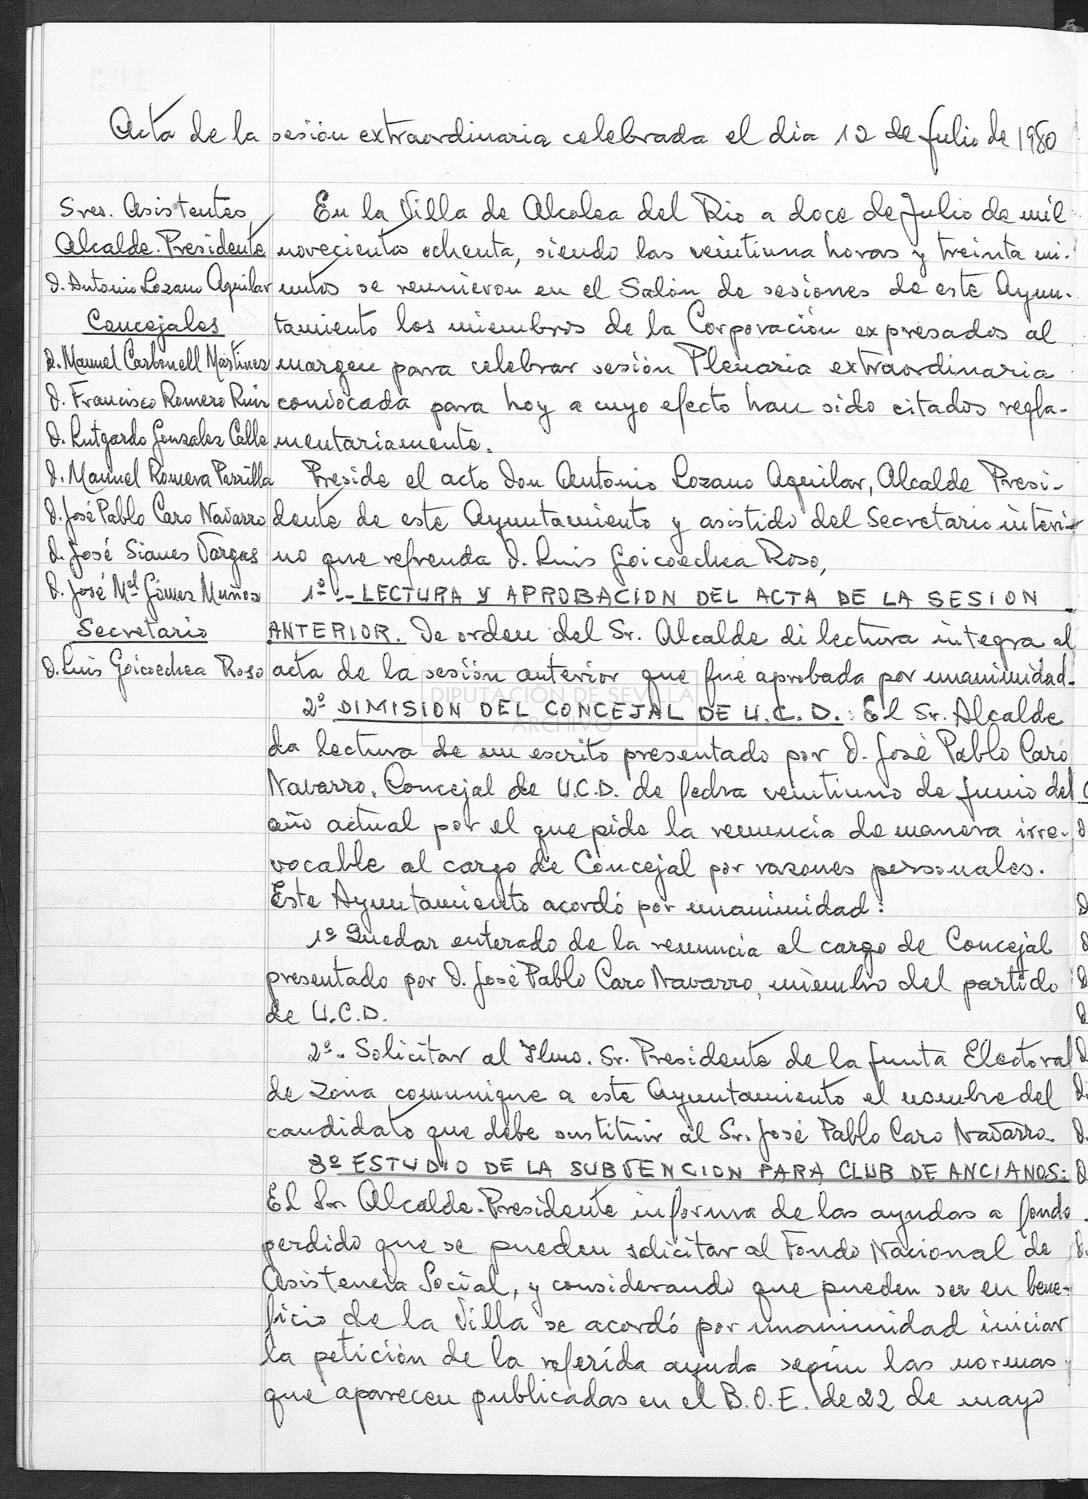 Acta de la sesión extraordinaria celebrada el dia 12 de Julio de 1980
Sres. Asistentes
Alcalde-Presidente
D. Antonio Lozano Aguilar
Concejales
D. Manuel Carbonell Martinez
D. Francisco Romero Ruiz
D. Rutgardo Gonzalez Calle
D. Manuel Romera Parrilla
D. José Pablo Caro Navarro
D. José Sianes Vargas
D. José Mel Gómez Muñoz
Secretario
D. Luis Goicoechea Roso
En la Villa de Alcolea del Rio a doce de Julio de mil
novecientos ochenta, siendo las veintiuna horas y treinta mi-
nutos se reunieron en el Salón de sesiones de este Ayun-
tamiento los miembros de la Corporación expresados al
margen para celebrar sesión Plenaria extraordinaria
convocada para hoy a cuyo efecto han sido citados regla-
mentariamente.
Preside el acto Don Antonio Lozano Aguilar, Alcalde Presi-
dente de este Ayuntamiento y asistido del Secretario interi-
no que refrenda D. Luis Goicoechea Roso,
1º.- LECTURA Y APROBACION DEL ACTA DE LA SESION
ANTERIOR. De orden del Sr. Alcalde di lectura integra al
acta de la sesión anterior que fue aprobada por unanimidad.
2º DIMISION DEL CONCEJAL DE U.C.D.: El Sr. Alcalde
da lectura de un escrito presentado por D. José Pablo Caro
Navarro, Concejal de U.C.D. de fecha veintiuno de Junio del
año actual por el que pide la renuncia de manera irre-
vocable al cargo de Concejal por razones personales.
Este Ayuntamiento acordó por unanimidad:
1º Quedar enterado de la renuncia al cargo de Concejal
presentado por D. José Pablo Caro Navarro, miembro del partido
de U.C.D.
2º.- Solicitar al Ilmo. Sr. Presidente de la Junta Electoral
de Zona comunique a este Ayuntamiento el nombre del
candidato que debe sustituir al Sr. José Pablo Caro Navarro.
3º ESTUDIO DE LA SUBVENCION PARA CLUB DE ANCIANOS:
El Sr. Alcalde-Presidente informa de las ayudas a fondo
perdido que se pueden solicitar al Fondo Nacional de
Asistencia Social, y considerando que pueden ser en bene-
ficio de la Villa se acordó por unanimidad iniciar
la petición de la referida ayuda según las normas
que aparecen publicadas en el B.O.E. de 22 de mayo
DIPUTACIÓN DE SEVILLA
ARCHIVO